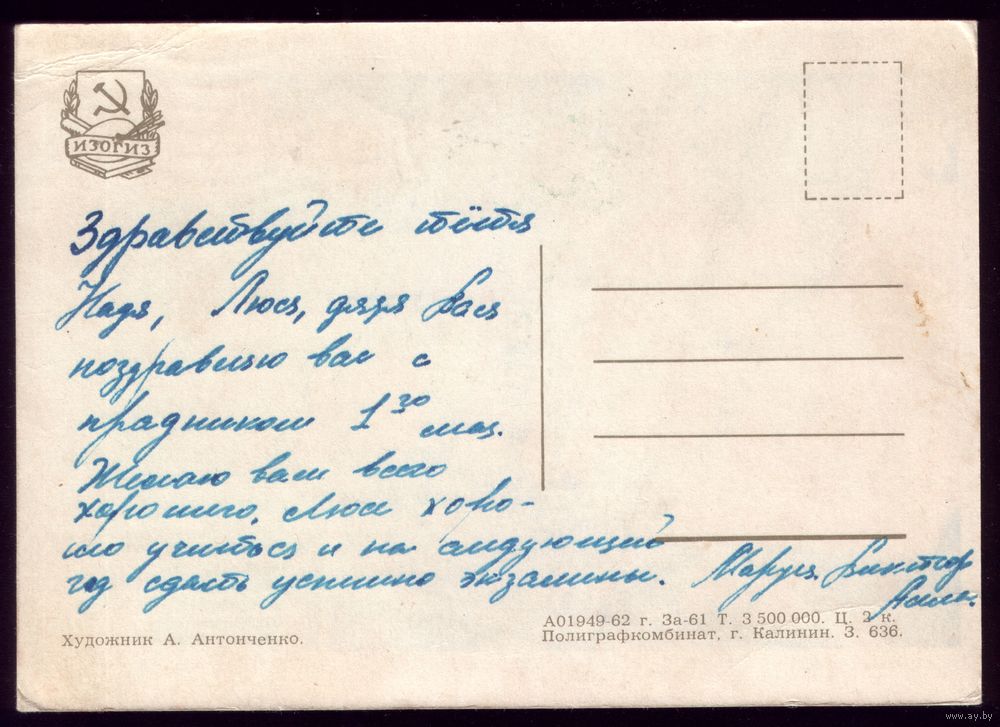 ИЗОГИЗ
Здравствуйте тётя
Надя, Люся, дядя Вася
поздравляю вас с
праздником 1го мая.
Желаю вам всего
хорошего. Люсе хоро-
шо учиться и на следующий
год сдать успешно экзамены. Маруся. Виктор
Художник А. Антонченко.
А01949-62 г. За-61 Т. 3 500 000. Ц. 2 к.
Полиграфкомбинат, г. Калинин. З. 636.
www.ay.by